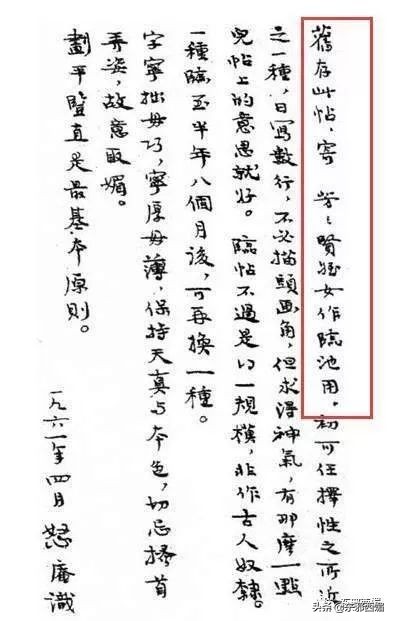 舊存此帖，寄 芳芳賢姪女作臨池用。初可任擇性之所近
之一種，日寫數行，不必描頭畫角，但求得神氣，有那麼一點
兒帖上的意思就好。臨帖不過是得一規模，非作古人奴隸。
一種臨至半年八個月後，可再換一種。
字寧拙毋巧，寧厚毋薄，保持天真與本色，切忌搔首
弄姿，故意取媚。
劃平豎直是最基本原則。
一九六一年四月 怒庵識
头条 @东邪西煋